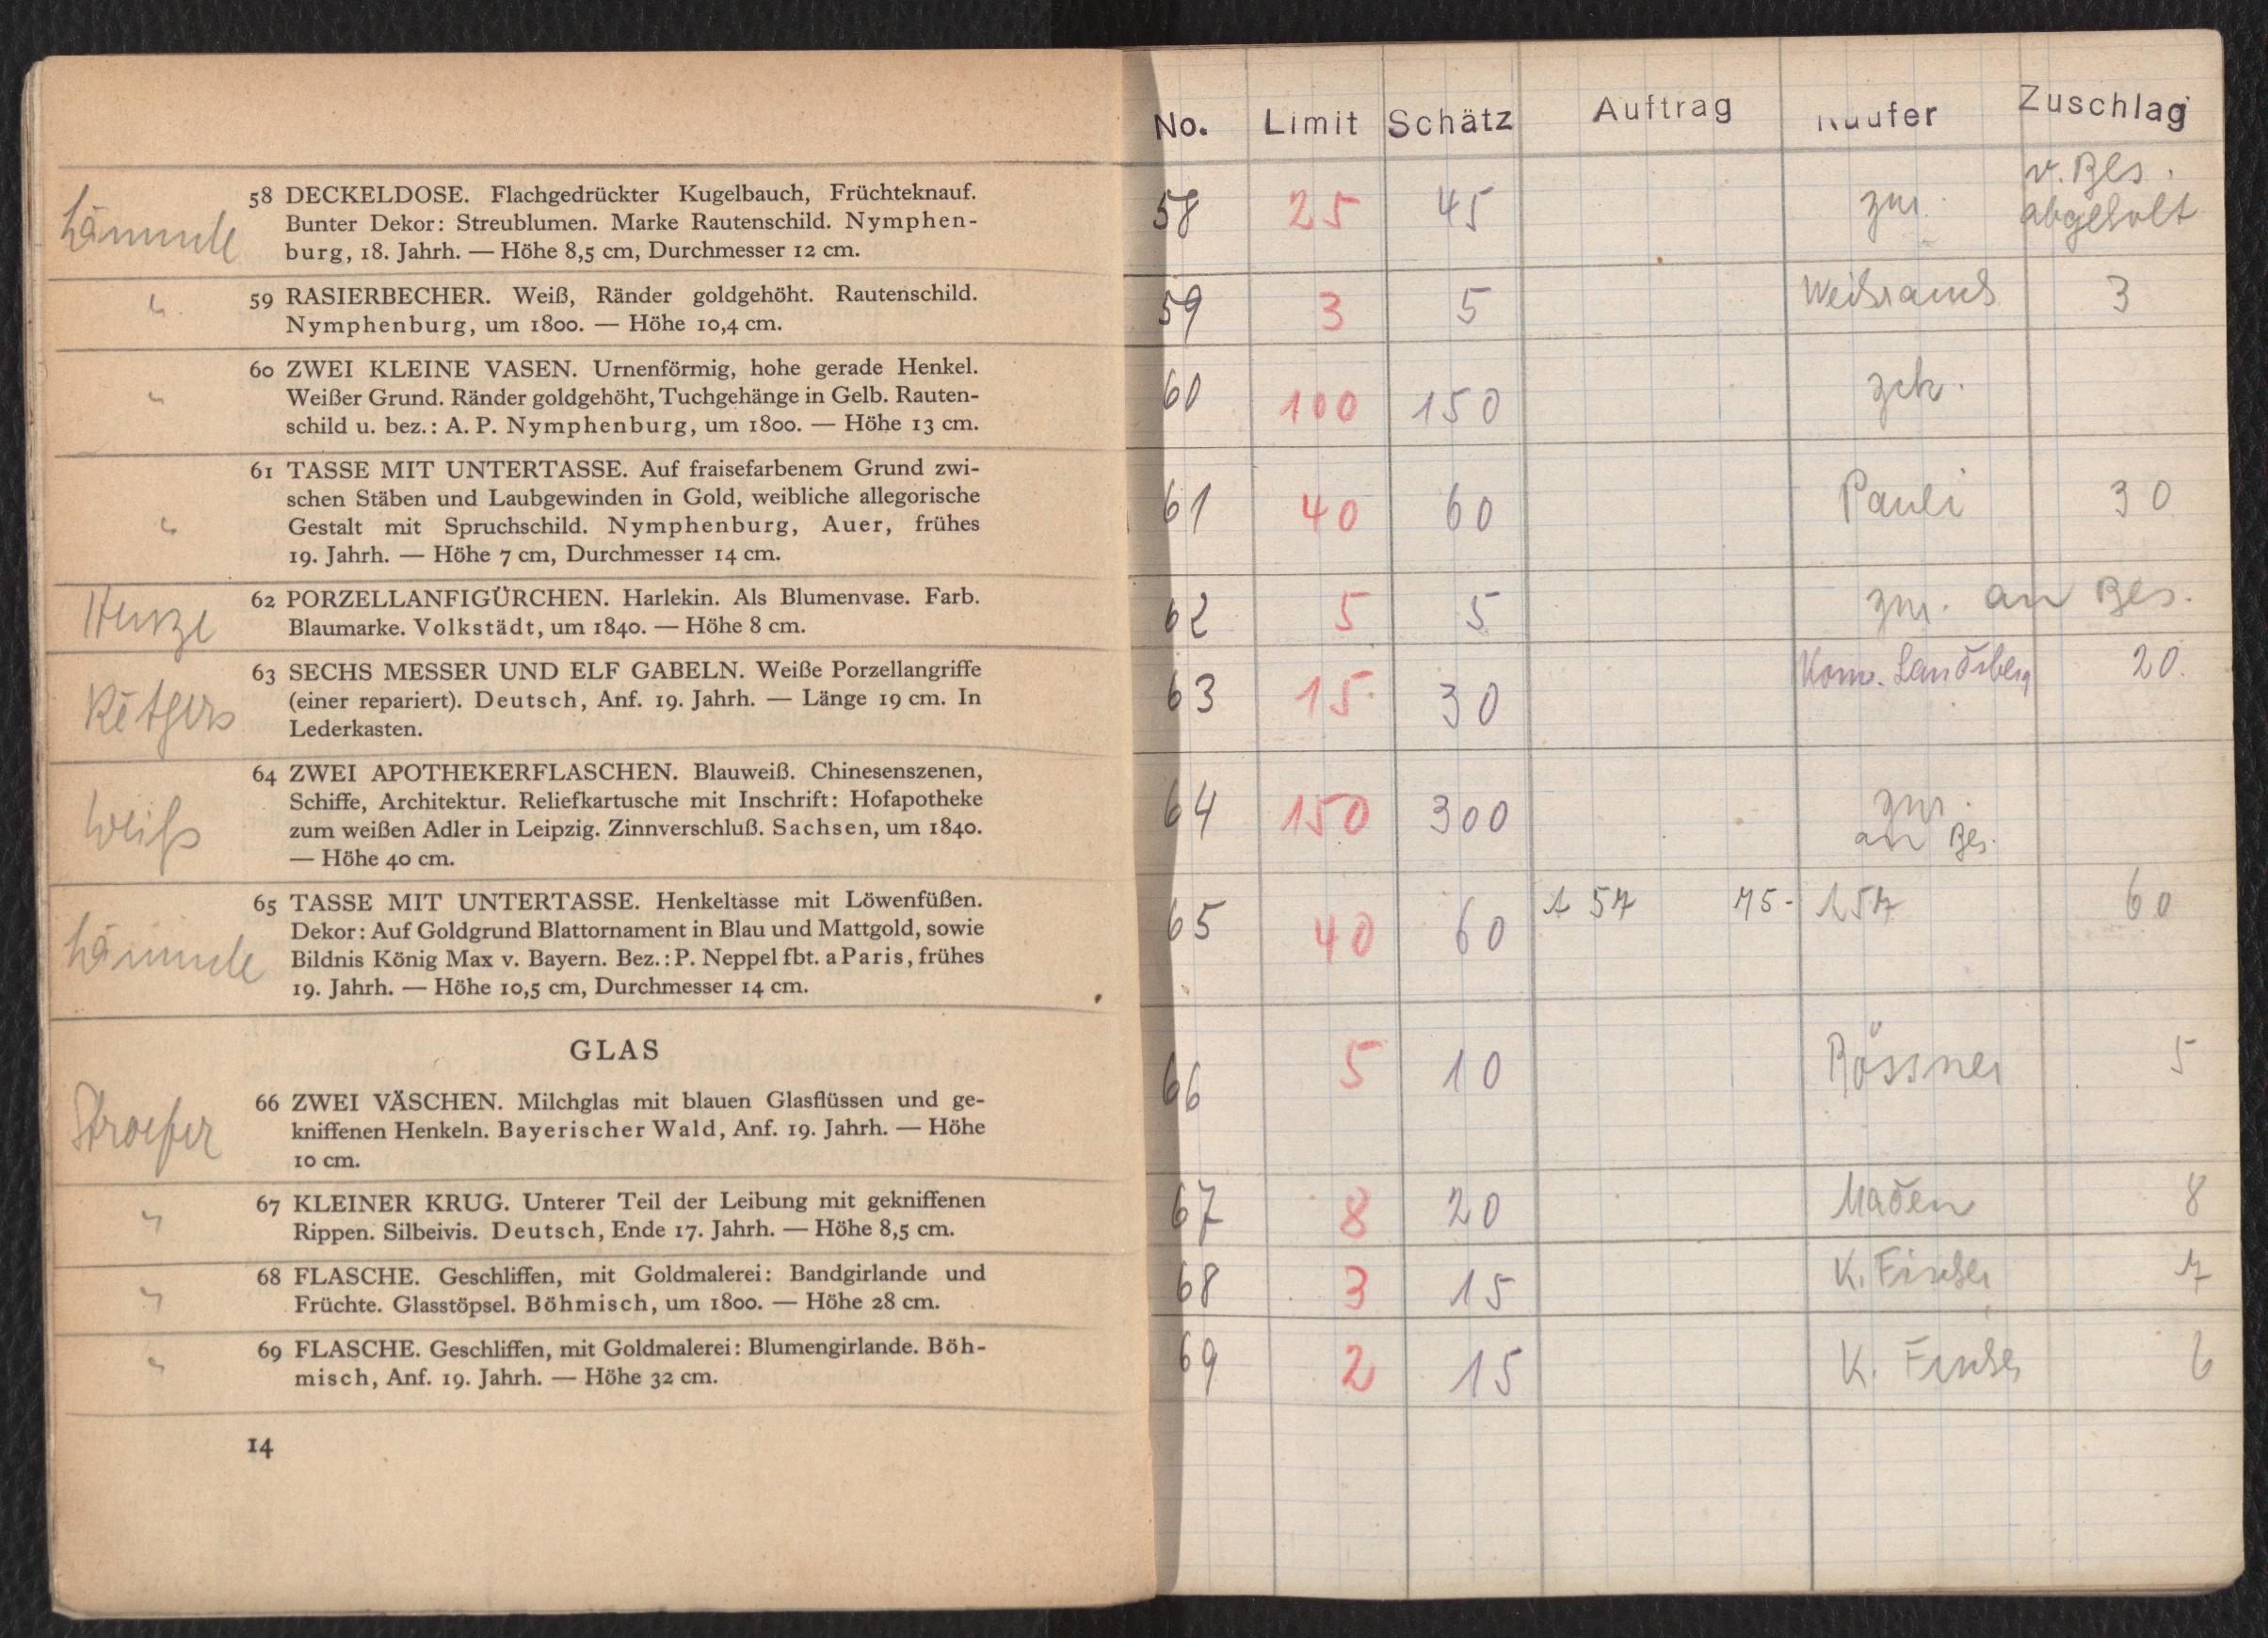 58 DECKELDOSE. Flachgedrückter Kugelbauch, Früchteknauf.
Bunter Dekor: Streublumen. Marke Rautenschild. Nymphen-
burg, 18. Jahrh. — Höhe 8,5 cm, Durchmesser 12 cm.
"
59 RASIERBECHER. Weiß, Ränder goldgehöht. Rautenschild.
Nymphenburg, um 1800. — Höhe 10,4 cm.
"
60 ZWEI KLEINE VASEN. Urnenförmig, hohe gerade Henkel.
Weißer Grund. Ränder goldgehöht, Tuchgehänge in Gelb. Rauten-
schild u. bez.: A. P. Nymphenburg, um 1800. — Höhe 13 cm.
"
61 TASSE MIT UNTERTASSE. Auf fraisefarbenem Grund zwi-
schen Stäben und Laubgewinden in Gold, weibliche allegorische
Gestalt mit Spruchschild. Nymphenburg, Auer, frühes
19. Jahrh. — Höhe 7 cm, Durchmesser 14 cm.
Henze
62 PORZELLANFIGÜRCHEN. Harlekin. Als Blumenvase. Farb.
Blaumarke. Volkstädt, um 1840. — Höhe 8 cm.
Rêtgers
63 SECHS MESSER UND ELF GABELN. Weiße Porzellangriffe
(einer repariert). Deutsch, Anf. 19. Jahrh. — Länge 19 cm. In
Lederkasten.
Weiß
64 ZWEI APOTHEKERFLASCHEN. Blauweiß. Chinesenszenen,
Schiffe, Architektur. Reliefkartusche mit Inschrift: Hofapotheke
zum weißen Adler in Leipzig. Zinnverschluß. Sachsen, um 1840.
— Höhe 40 cm.
65 TASSE MIT UNTERTASSE. Henkeltasse mit Löwenfüßen.
Dekor: Auf Goldgrund Blattornament in Blau und Mattgold, sowie
Bildnis König Max v. Bayern. Bez.: P. Neppel fbt. a Paris, frühes
19. Jahrh. — Höhe 10,5 cm, Durchmesser 14 cm.
GLAS
Stroefer
66 ZWEI VÄSCHEN. Milchglas mit blauen Glasflüssen und ge-
kniffenen Henkeln. Bayerischer Wald, Anf. 19. Jahrh. — Höhe
10 cm.
"
67 KLEINER KRUG. Unterer Teil der Leibung mit gekniffenen
Rippen. Silbeivis. Deutsch, Ende 17. Jahrh. — Höhe 8,5 cm.
"
68 FLASCHE. Geschliffen, mit Goldmalerei: Bandgirlande und
Früchte. Glasstöpsel. Böhmisch, um 1800. — Höhe 28 cm.
"
69 FLASCHE. Geschliffen, mit Goldmalerei: Blumengirlande. Böh-
misch, Anf. 19. Jahrh. — Höhe 32 cm.
14
No. Limit Schätz Auftrag Käufer Zuschlag
58 25 45 zur. v. Bes. abgeholt
59 3 5 3
60 100 150 zck.
61 40 60 Pauli 30
62 5 5 zur. an Bes.
63 15 30 Landsberg 20.
64 150 300 zur.
an Bes.
65 40 60 157 75- 157 60
66 5 10 Rössner 5
67 8 20 Maden 8
68 3 15 K. Fischer 7
69 2 15 K. Fischer 6